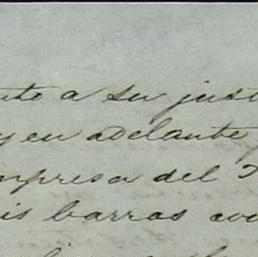 nte a su just
y en adelante
mpresa del F
is barras